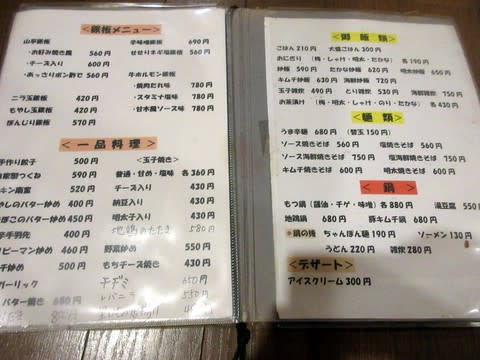 ＜鉄板メニュー＞
山芋鉄板
・お好み焼き風 560円
・チーズ入り 600円
・あっさりポン酢で 560円
ニラ玉鉄板 420円
もやし玉鉄板 420円
ぼんじり鉄板 600円
辛味噌鉄板 690円
せせりネギ塩鉄板 680円
牛ホルモン鉄板
・焼肉だれ味 780円
・スタミナ塩味 780円
・甘木風ソース味 780円
＜一品料理＞
手作り餃子 500円
つくね 590円
キン南蛮 520円
やしのバター炒め 400円
ほこのバター炒め 450円
辛手羽先 400円
ピーマン炒め 600円
炒め 500円
ガーリック
バター焼き 680円
＜玉子焼き＞
普通・甘め・塩味 各360円
チーズ入り 430円
納豆入り 410円
明太子入り 430円
地鶏のたたき 580円
野菜炒め 550円
もちチーズ焼き 430円
チヂミ 650円
レバニラ 550円
＜御飯類＞
ごはん 210円 大盛ごはん 300円
おにぎり （梅・しゃけ・明太・たかな）
炒飯 590円 たかな炒飯 620円 明太炒飯
キムチ炒飯 630円 海鮮炒飯 720円
玉子雑炊 490円 とり雑炊 530円 海鮮雑炊
お茶漬け （梅・明太・しゃけ・のり・たかな） 各430円
＜麺類＞
うま辛麺 680円 （替玉 150円）
ソース焼きそば 560円 塩焼きそば 560円
ソース海鮮焼きそば 750円 塩海鮮焼きそば 750円
キムチ焼きそば 600円 明太焼きそば
＜鍋＞
もつ鍋（醤油・チゲ・味噌）各880円 湯豆腐 550円
地鶏鍋 680円 豚キムチ鍋 680円
鍋の後 ちゃんぽん麺 190円 ソーメン 130円
うどん 220円 雑炊 280円
＜デザート＞
アイスクリーム 300円